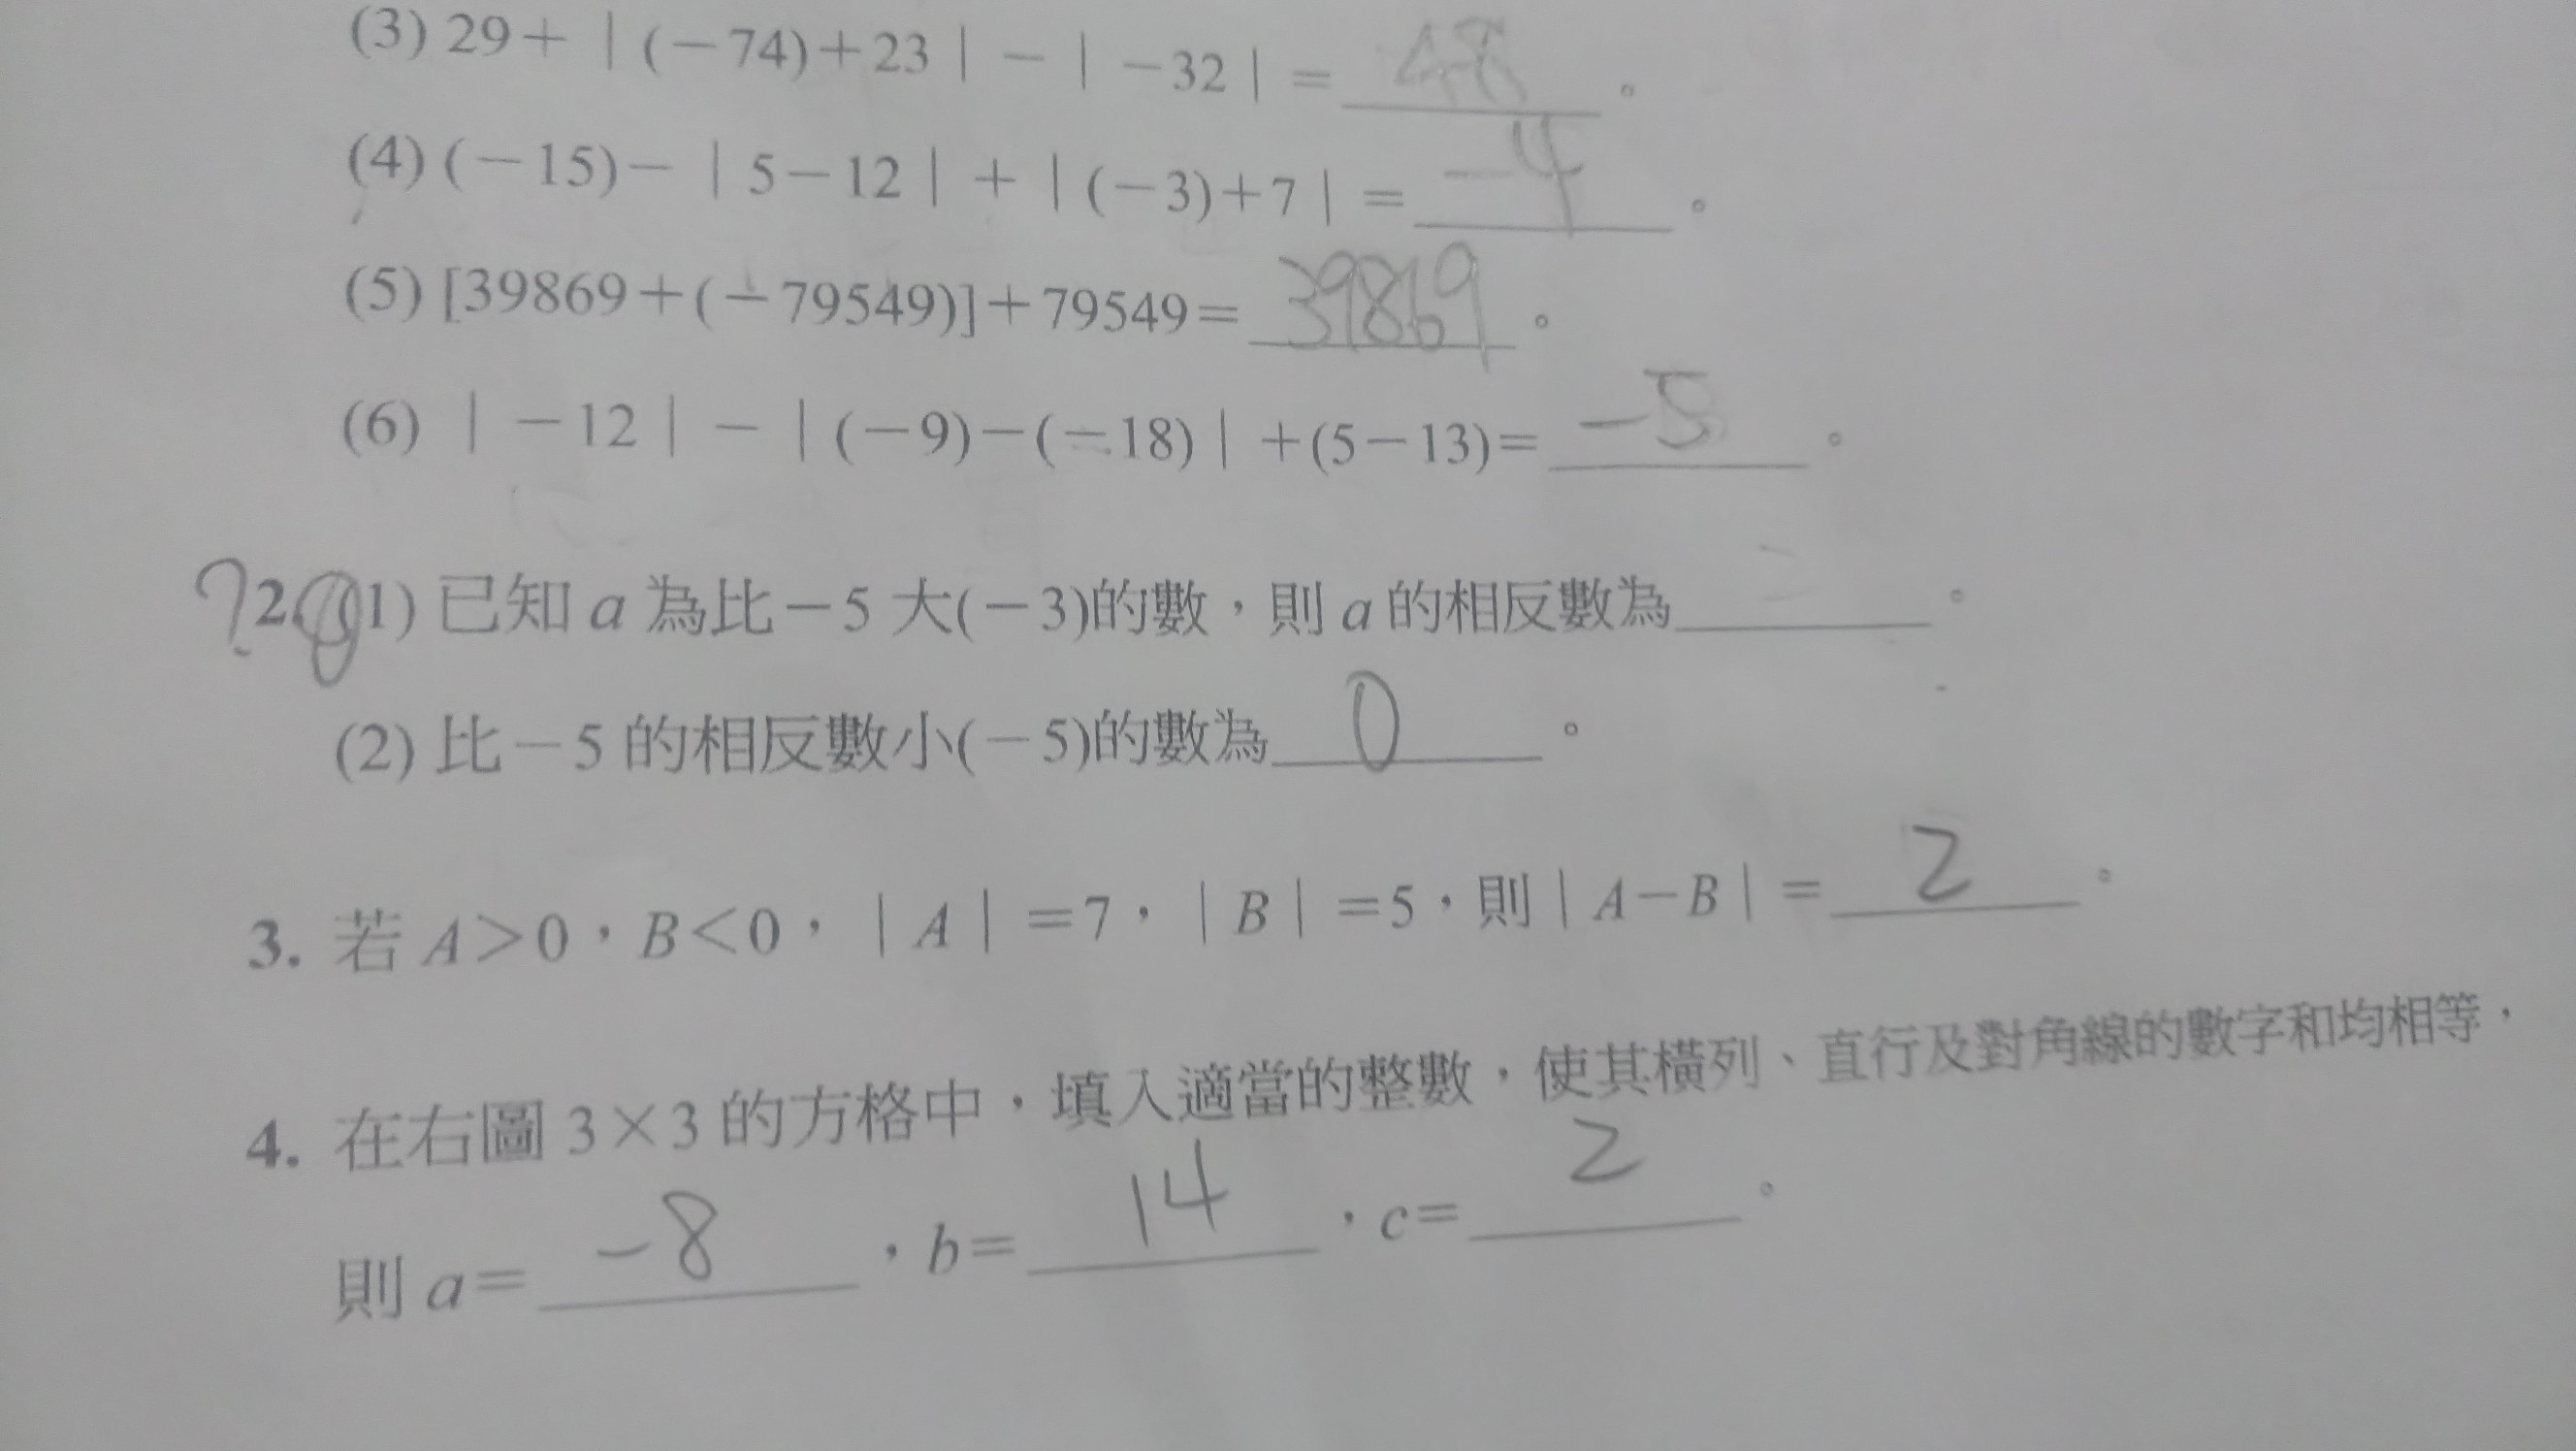 (3) 29+|(-74)+23|-|-32|= 48 。
(4) (-15)-|5-12|+|(-3)+7|= -4 。
(5) [39869+(-79549)]+79549= 39869 。
(6) |-12|-|(-9)-(-18)|+(5-13)= -5 。
? 2. (1) 已知 a 為比-5 大(-3)的數，則 a 的相反數為 。
(2) 比-5 的相反數小(-5)的數為 0 。
3. 若 A>0，B<0，|A|=7，|B|=5，則|A-B|= 2 。
4. 在右圖 3×3 的方格中，填入適當的整數，使其橫列、直行及對角線的數字和均相等，
則 a= -8 ，b= 14 ，c= 2 。